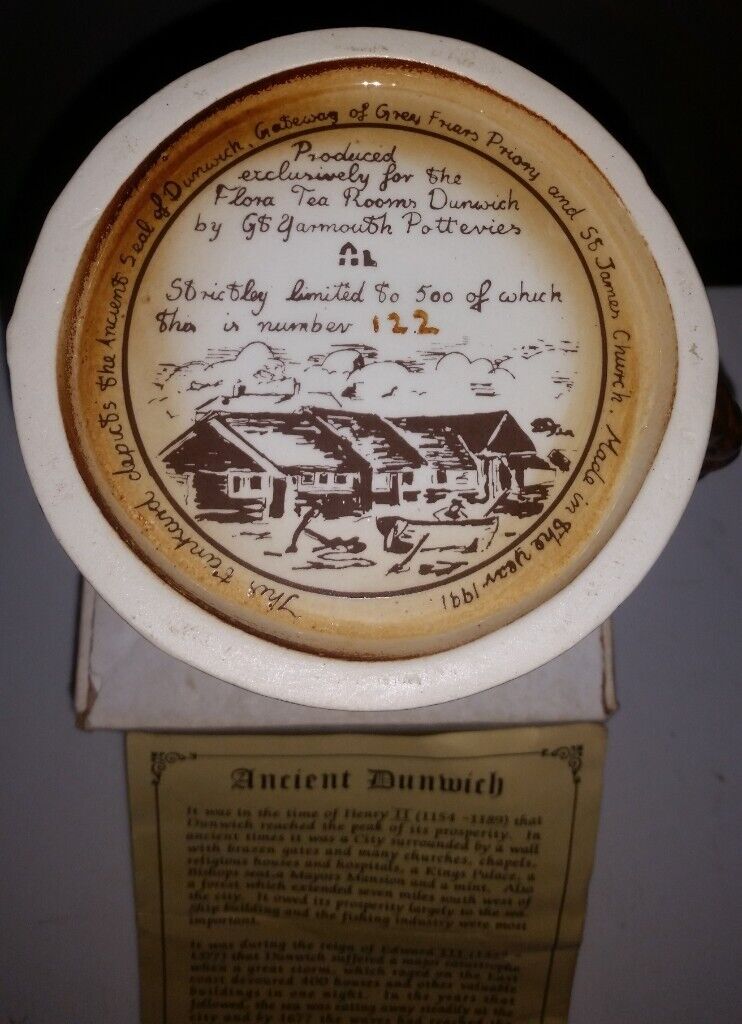 This tankard depicts the Ancient Seal of Dunwich, Gateway of Grey Friars Priory and St James Church. Made in the year 1991.
Produced
exclusively for the
Flora Tea Rooms Dunwich
by Gt Yarmouth Potteries
Strictley limited to 500 of which
this is number 122
Ancient Dunwich
It was in the time of Henry II (1154 -1189) that
Dunwich reached the peak of its prosperity. In
ancient times it was a City surrounded by a wall
with brazen gates and many churches, chapels,
religious houses and hospitals, a Kings Palace, a
Bishops seat, a Mayors Mansion and a mint. Also
a forest which extended seven miles south west of
the city. It owed its prosperity largely to the sea.
Ship building and the fishing industry were most
important.
It was during the reign of Edward III
that Dunwich suffered a major catastrophe
when a great storm, which raged on the East
coast devoured 400 houses and other valuable
buildings in one night. In the years that
followed, the sea was eating away steadily at the
city and by 1677 the waves had reached the